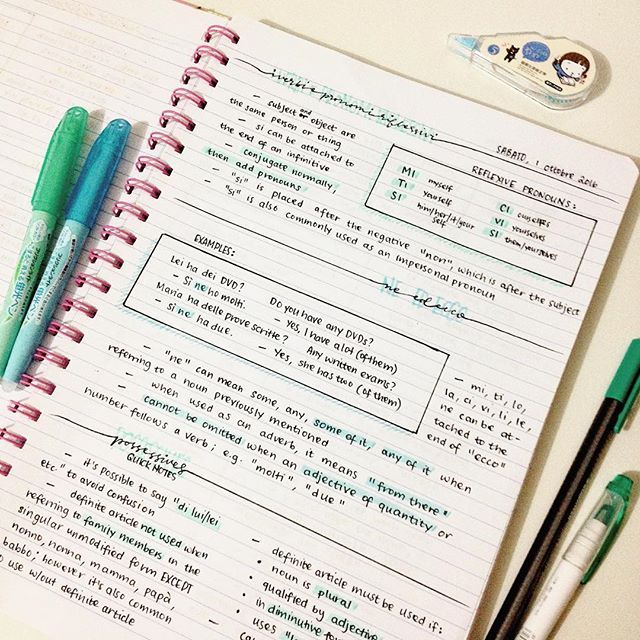 i verbi e pronomi riflessivi
SABATO, 1 ottobre 2016
- subject and object are
the same person or thing
- si can be attached to
the end of an infinitive
- conjugate normally,
then add pronouns
- "si" is placed after the negative "non", which is after the subject
- "si" is also commonly used as an impersonal pronoun
REFLEXIVE PRONOUNS:
MI myself
TI yourself
SI him/her/it/your
self
CI ourselves
VI yourselves
SI them/yourselves
NE ED ECCO
ne ed ecco
EXAMPLES:
Lei ha dei DVD? Do you have any DVDs?
- Si ne ho molti. - Yes, I have a lot (of them)
Maria ha delle prove scritte? Any written exams?
- Si ne ha due. - Yes, she has two (of them)
- "ne" can mean some, any, some of it, any of it when
referring to a noun previously mentioned
- when used as an adverb, it means "from there"
cannot be omitted when an adjective of quantity or
number follows a verb; e.g. "molti", "due"
- mi, ti, lo,
la, ci, vi, li, le,
ne can be at-
tached to the
end of "ecco"
possessives
QUICK NOTES
- it's possible to say "di lui/lei
etc" to avoid confusion
- definite article not used when
referring to family members in the
singular unmodified form EXCEPT
nonno, nonna, mamma, papà,
babbo; however it's also common
to use w/out definite article
- definite article must be used if:
• noun is plural
• qualified by adjective
• in diminutive
• uses